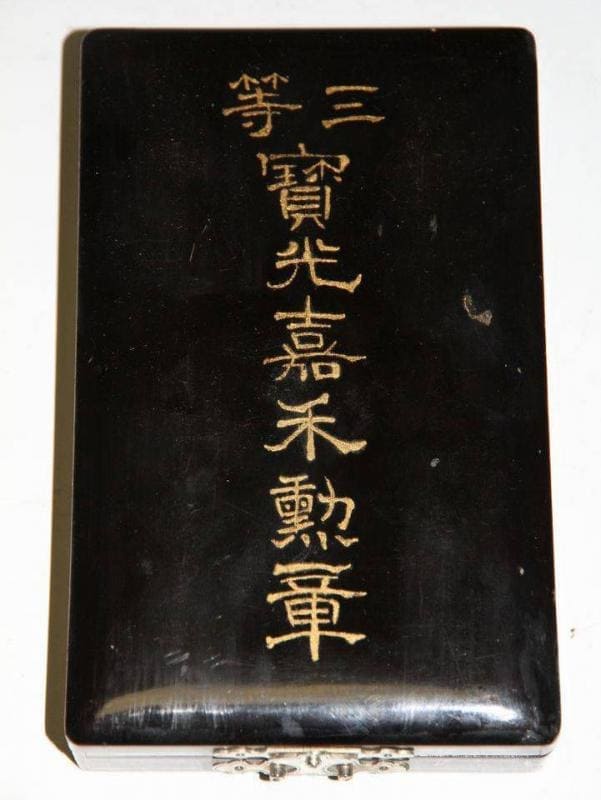 三等
寶光嘉禾勲章